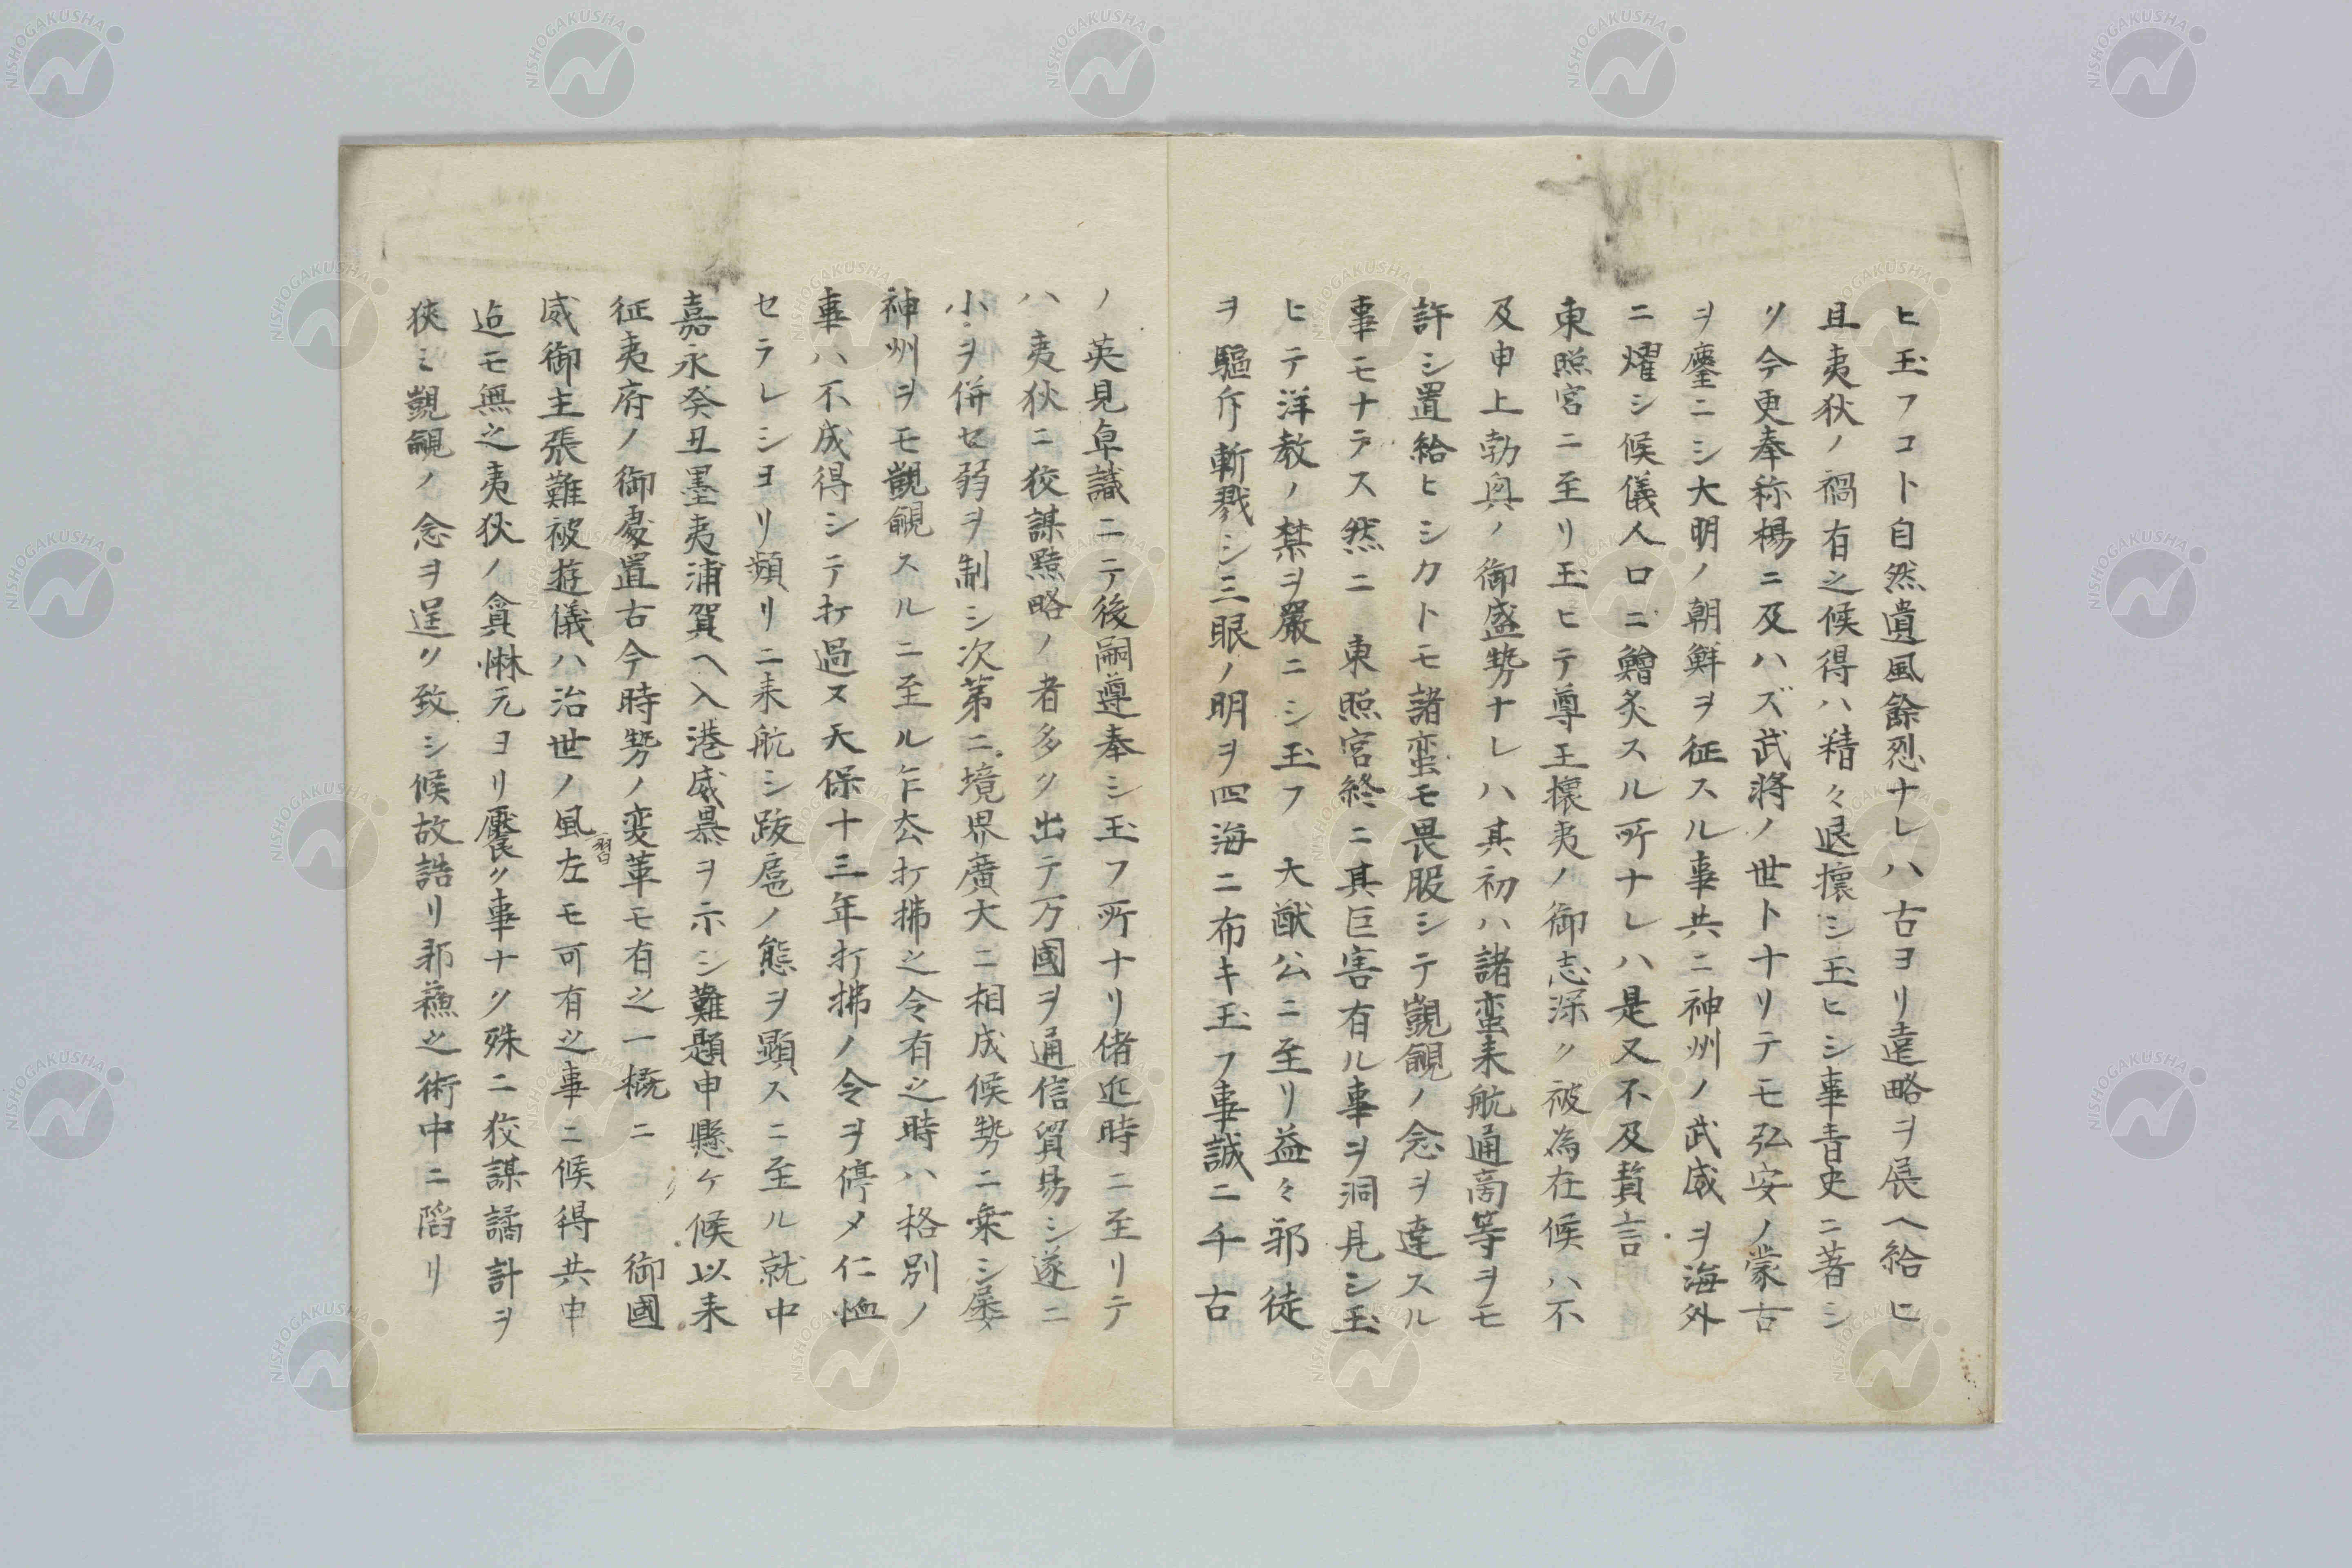 ヒ玉フコト自然遺風餘烈ナレハ古ヨリ遠略ヲ展ヘ給ヒ
且夷狄ノ禍有之候得ハ精々退攘シ玉ヒシ事青史ニ著シ
リ今更奉称楊ニ及ハズ武将ノ世ト十リテモ弘安ノ蒙古
ヲ鏖ニシ大明ノ朝鮮ヲ征スル事共ニ神州ノ武威ヲ海外
ニ燿シ候儀人口ニ鱠炙スル所ナレハ是又不及贅言
東照宮ニ至リ玉ヒテ尊王攘夷ノ御志深ク被為在候ハ不
及申上勃興ノ御盛勢ナレハ其初ハ諸蛮来航通商等ヲモ
許シ置給ヒシカトモ諸蛮モ畏服シテ覬覦ノ念ヲ達スル
事モナラス然ニ 東照宮終ニ其巨害有ル事ヲ洞見シ玉
ヒテ洋教ノ禁ヲ嚴ニシ玉フ 大猷公ニ至リ益々邪徒
ヲ驅斥斬戮シ三眼ノ明ヲ四海ニ布キ玉フ事誠ニ千古
ノ英見卓識ニテ後嗣遵奉シ玉フ所ナリ偖近時ニ至リテ
ハ夷狄ニ狡謀黠略ノ者多ク出テ万國ヲ通信貿易シ遂ニ
小ヲ併セ弱ヲ制シ次第ニ境界廣大ニ相成候勢ニ乗シ屡
神州ヲモ覬覦スルニ至ル乍去打拂之令有之時ハ格別ノ
事ハ不成得シテ打過ヌ天保十三年打拂ノ令ヲ停メ仁恤
セラレシヨリ頻リニ来航シ跋扈ノ態ヲ顕スニ至ル就中
嘉永癸丑墨夷浦賀ヘ入港威暴ヲ示シ難題申懸ケ候以来
征夷府ノ御處置古今時勢ノ変革モ有之一概ニモ 御國
威御主張難被遊儀ハ治世ノ風習左モ可有之事ニ候得共申
迄モ無之夷狄ノ貪惏元ヨリ饜ク事ナク殊ニ狡謀譎計ヲ
狭ミ覬覦ノ念ヲ逞ク致シ候故誥リ邪蘓之術中ニ陷リ
NISHOGAKUSHA